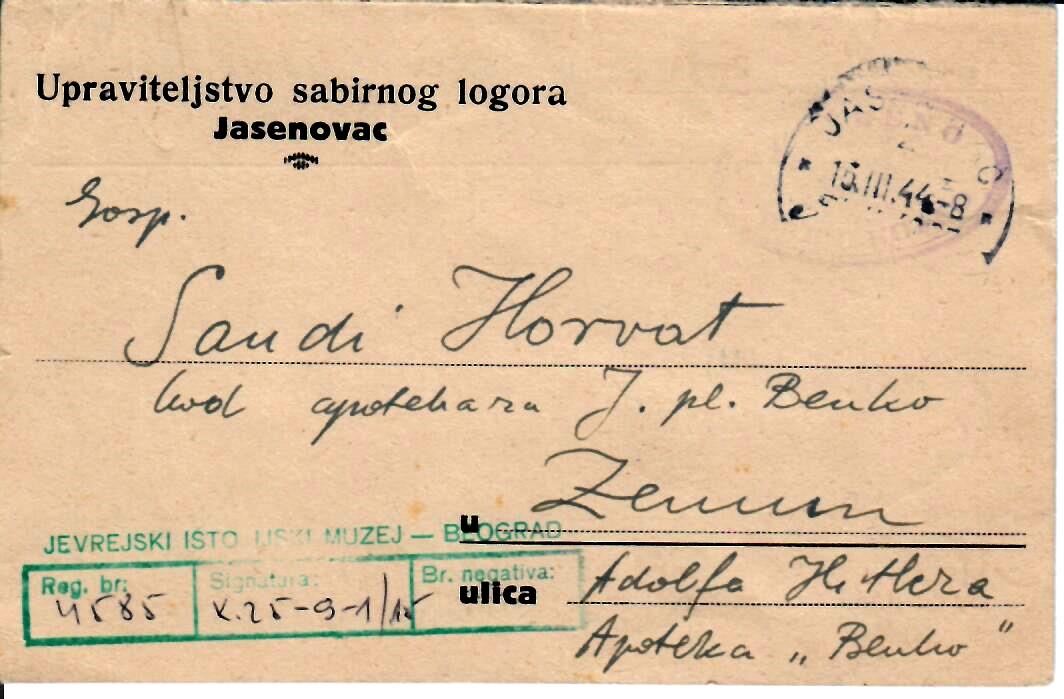 Upraviteljstvo sabirnog logora
Jasenovac
15.III.44-8
Gosp.
Saudi Horvat
kod apotekara J. pl. Benko
u Zemun
JEVREJSKI ISTO IJSKI MUZEJ — BEOGRAD
Reg. br: Signatura: Br. negativa:
4585 K.25-9-1/15
ulica Adolfa Hitlera
Apoteka „Benko"